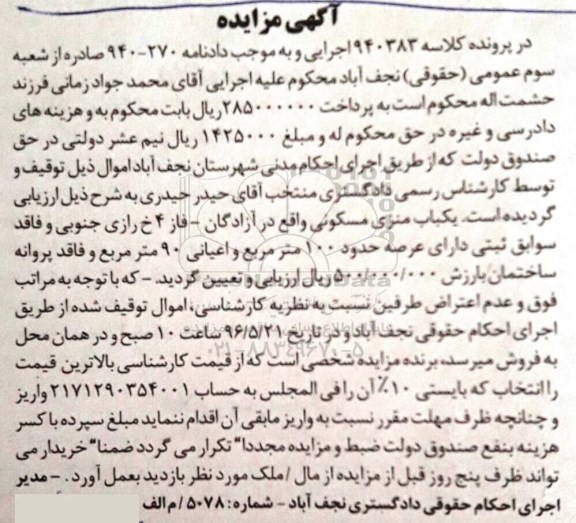 آگهی مزایده
در پرونده کلاسه ۹۴۰۳۸۳ اجرایی و به موجب دادنامه ۲۷۰-۹۴۰ صادره از شعبه
سوم عمومی (حقوقی) نجف آباد محکوم علیه اجرایی آقای محمد جواد زمانی فرزند
حشمت اله محکوم است به پرداخت ۲۸۵۰۰۰۰۰۰ ریال بابت محکوم به و هزینه های
دادرسی و غیره در حق محکوم له و مبلغ ۱۴۲۵۰۰۰ ریال نیم عشر دولتی در حق
صندوق دولت که از طریق اجرای احکام مدنی شهرستان نجف آباد اموال ذیل توقیف و
توسط کارشناس رسمی دادگستری منتخب آقای حیدر حیدری به شرح ذیل ارزیابی
گردیده است. یکباب منزل مسکونی واقع در آزادگان - فاز ۴ خ رازی جنوبی و فاقد
سوابق ثبتی دارای عرصه حدود ۱۰۰ متر مربع و اعیانی ۹۰ متر مربع و فاقد پروانه
ساختمان بارزش ۵۰۰/۰۰۰/۰۰۰ ریال ارزیابی و تعیین گردید. - که با توجه به مراتب
فوق و عدم اعتراض طرفین نسبت به نظریه کارشناسی، اموال توقیف شده از طریق
اجرای احکام حقوقی نجف آباد و در تاریخ ۹۶/۵/۲۱ ساعت ۱۰ صبح و در همان محل
به فروش میرسد، برنده مزایده شخصی است که از قیمت کارشناسی بالاترین قیمت
را انتخاب که بایستی ۱۰٪ آن را فی المجلس به حساب ۲۱۷۱۲۹۰۳۵۴۰۰۱ واریز
و چنانچه ظرف مهلت مقرر نسبت به واریز مابقی آن اقدام ننماید مبلغ سپرده با کسر
هزینه بنفع صندوق دولت ضبط و مزایده مجددا" تکرار می گردد ضمنا" خریدار می
تواند ظرف پنج روز قبل از مزایده از مال /ملک مورد نظر بازدید بعمل آورد. - مدیر
اجرای احکام حقوقی دادگستری نجف آباد - شماره: ۵۰۷۸ /م الف